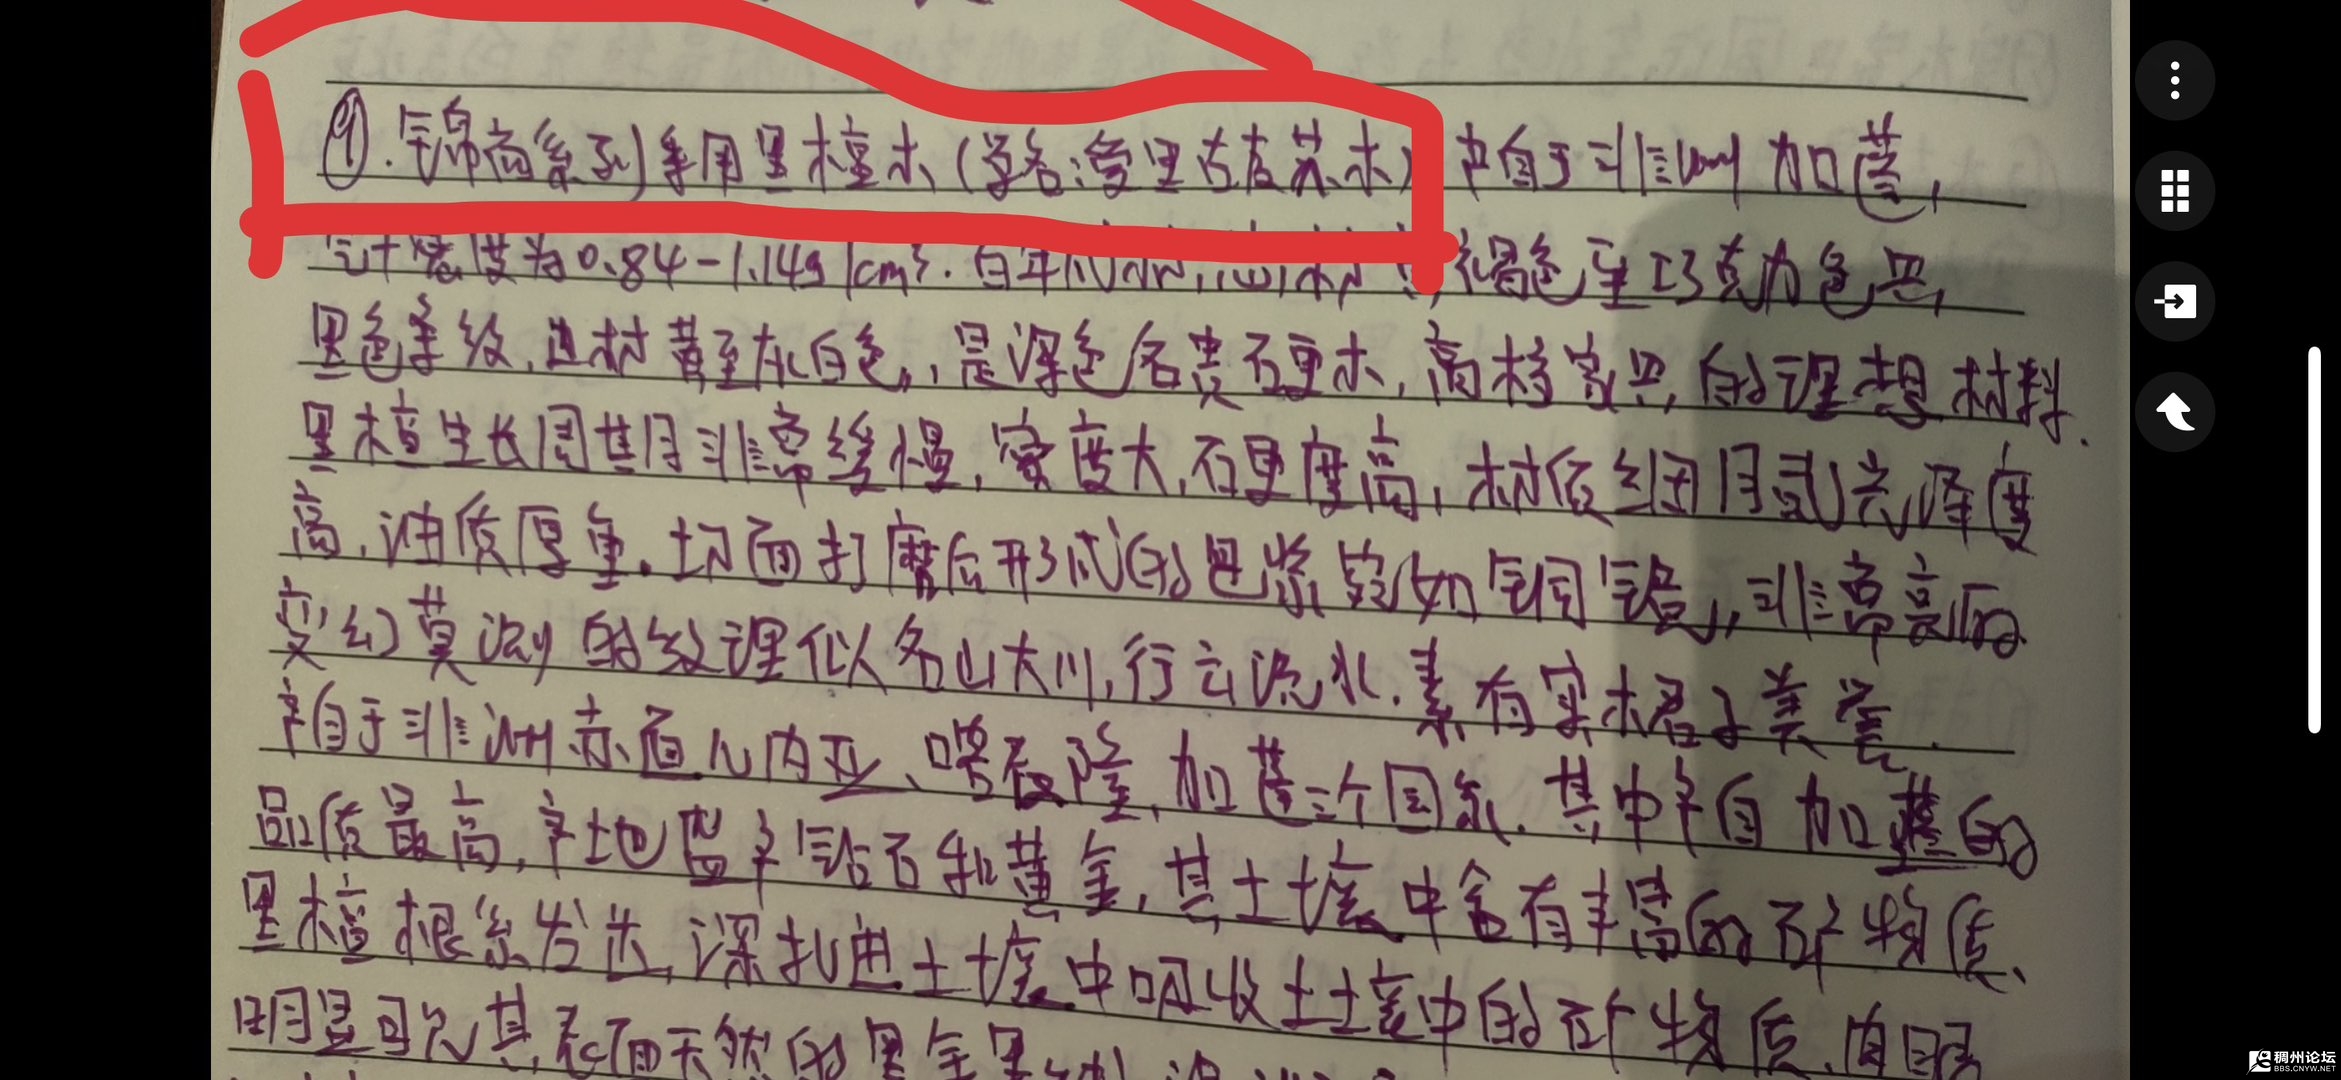 ⑨.锦尚系列采用黑檀木(学名:爱里古夷苏木)产自于非洲加蓬,
气干密度为0.84-1.14g/cm³.百年成材,心材 褐色至巧克力色具,
黑色条纹,边材黄至灰白色,是深色名贵硬木,高档家具,的理想材料.
黑檀生长周期非常缓慢,密度大,硬度高,材质细腻光泽度
高,油质厚重.切面打磨后形成的包浆宛如铜镜,非常亮丽
变幻莫测的纹理似名山大川,行云流水.素有实木君子美誉.
产自于非洲赤道几内亚、喀麦隆,加蓬三个国家.其中产自加蓬的
品质最高,产地盛产钻石和黄金,其土壤中含有丰富的矿物质、
黑檀根系发达,深扎进土壤中吸收土壤中的矿物质,肉眼
明显可见其表面天然的黑金
稠州论坛
BBS.CNYW.NET